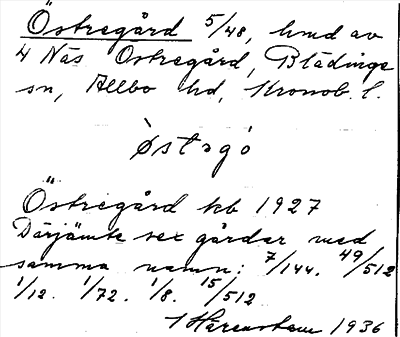 Östregård 5/48, hmd av
4 Näs Östregård, Blädinge
sn, Allbo hd, Kronob. l.
Östregård kb 1927
Därjämte sex gårdar med
samma namn: 7/144. 49/512
1/12. 1/72. 1/8. 15/512
1936